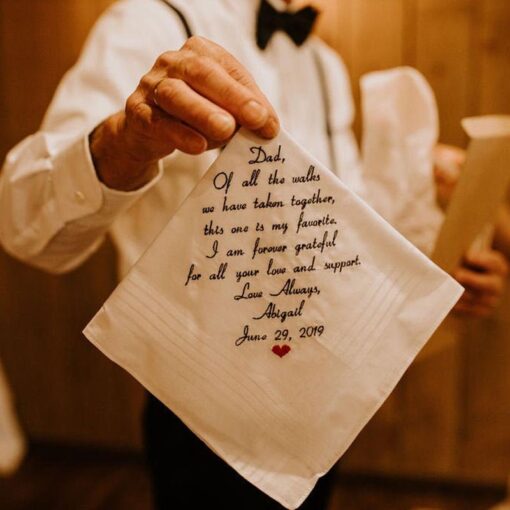 Dad,
Of all the walks
we have taken together,
this one is my favorite.
I am forever grateful
for all your love and support.
Love Always,
Abigail
June 29, 2019